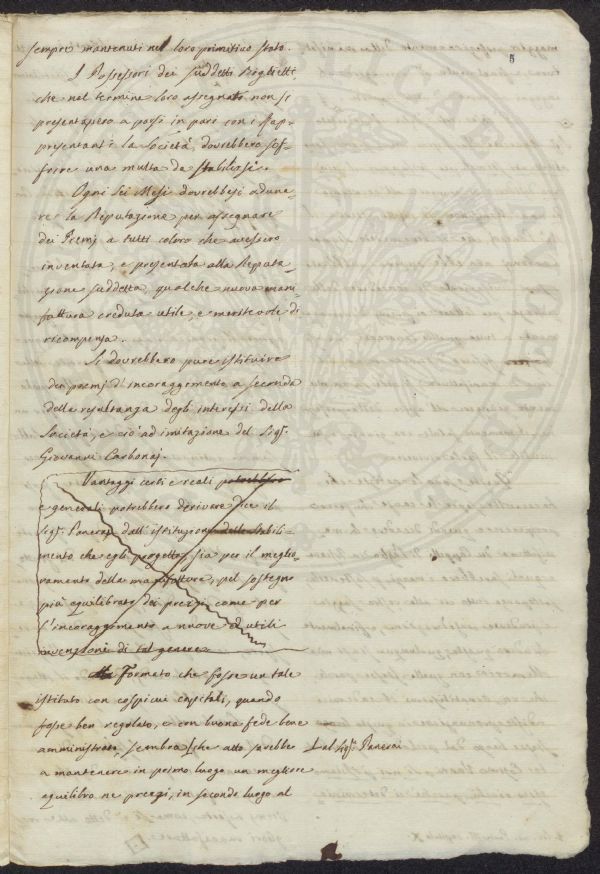 5
sempre mantenuti nel loro primitivo stato.
I Possessori dei suddetti Biglietti,
che nel termine loro assegnato non si
presentassero a porsi in pari con i Rap-
presentanti la Società, dovrebbero sof-
frire una multa da stabilirsi.
Ogni Sei Mesi dovrebbesi aduna-
re la Deputazione per assegnare
dei Premj a tutti coloro che avessero
inventata, e presentata alla Deputa-
zione suddetta, qualche nuova mani-
fattura creduta utile, e meritevole di
ricompensa.
Si dovrebbero pure istituire
dei premj d'incoraggimento a seconda
della resultanza degli interessi della
Società, e ciò ad imitazione del Sigr.
Giovanni Carbonaj.
Vantaggi certi e reali potrebbero
e generali potrebbero derivare dice il
Sigr. Panerai dall'istituzione dello stabili-
mento che egli progetta, sia per il meglio-
ramento della manifatture, pel sostegno
più equilibrato dei prezzi, come per
l'incoraggimento a nuove ed utili
invenzioni di tal genere.
Formato che fosse un tale
istituto con cospicui capitali, quando
fosse ben regolato, e con buona fede bene
amministrato, sembra che atto sarebbe al Sigr. Panerai
a mantenere in primo luogo un migliore
equilibro ne prezzi, in secondo luogo al